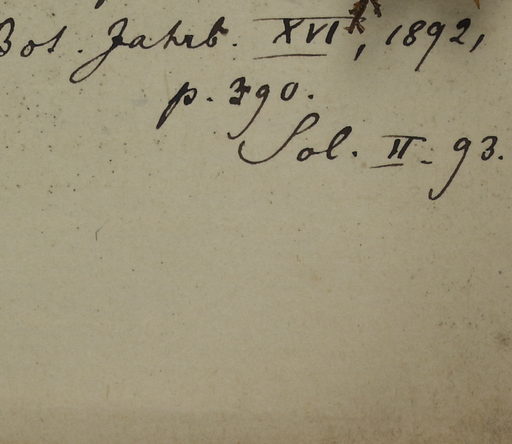 Bot. Jahrb. XVI, 1892,
p. 390.
Sol. II - 93.